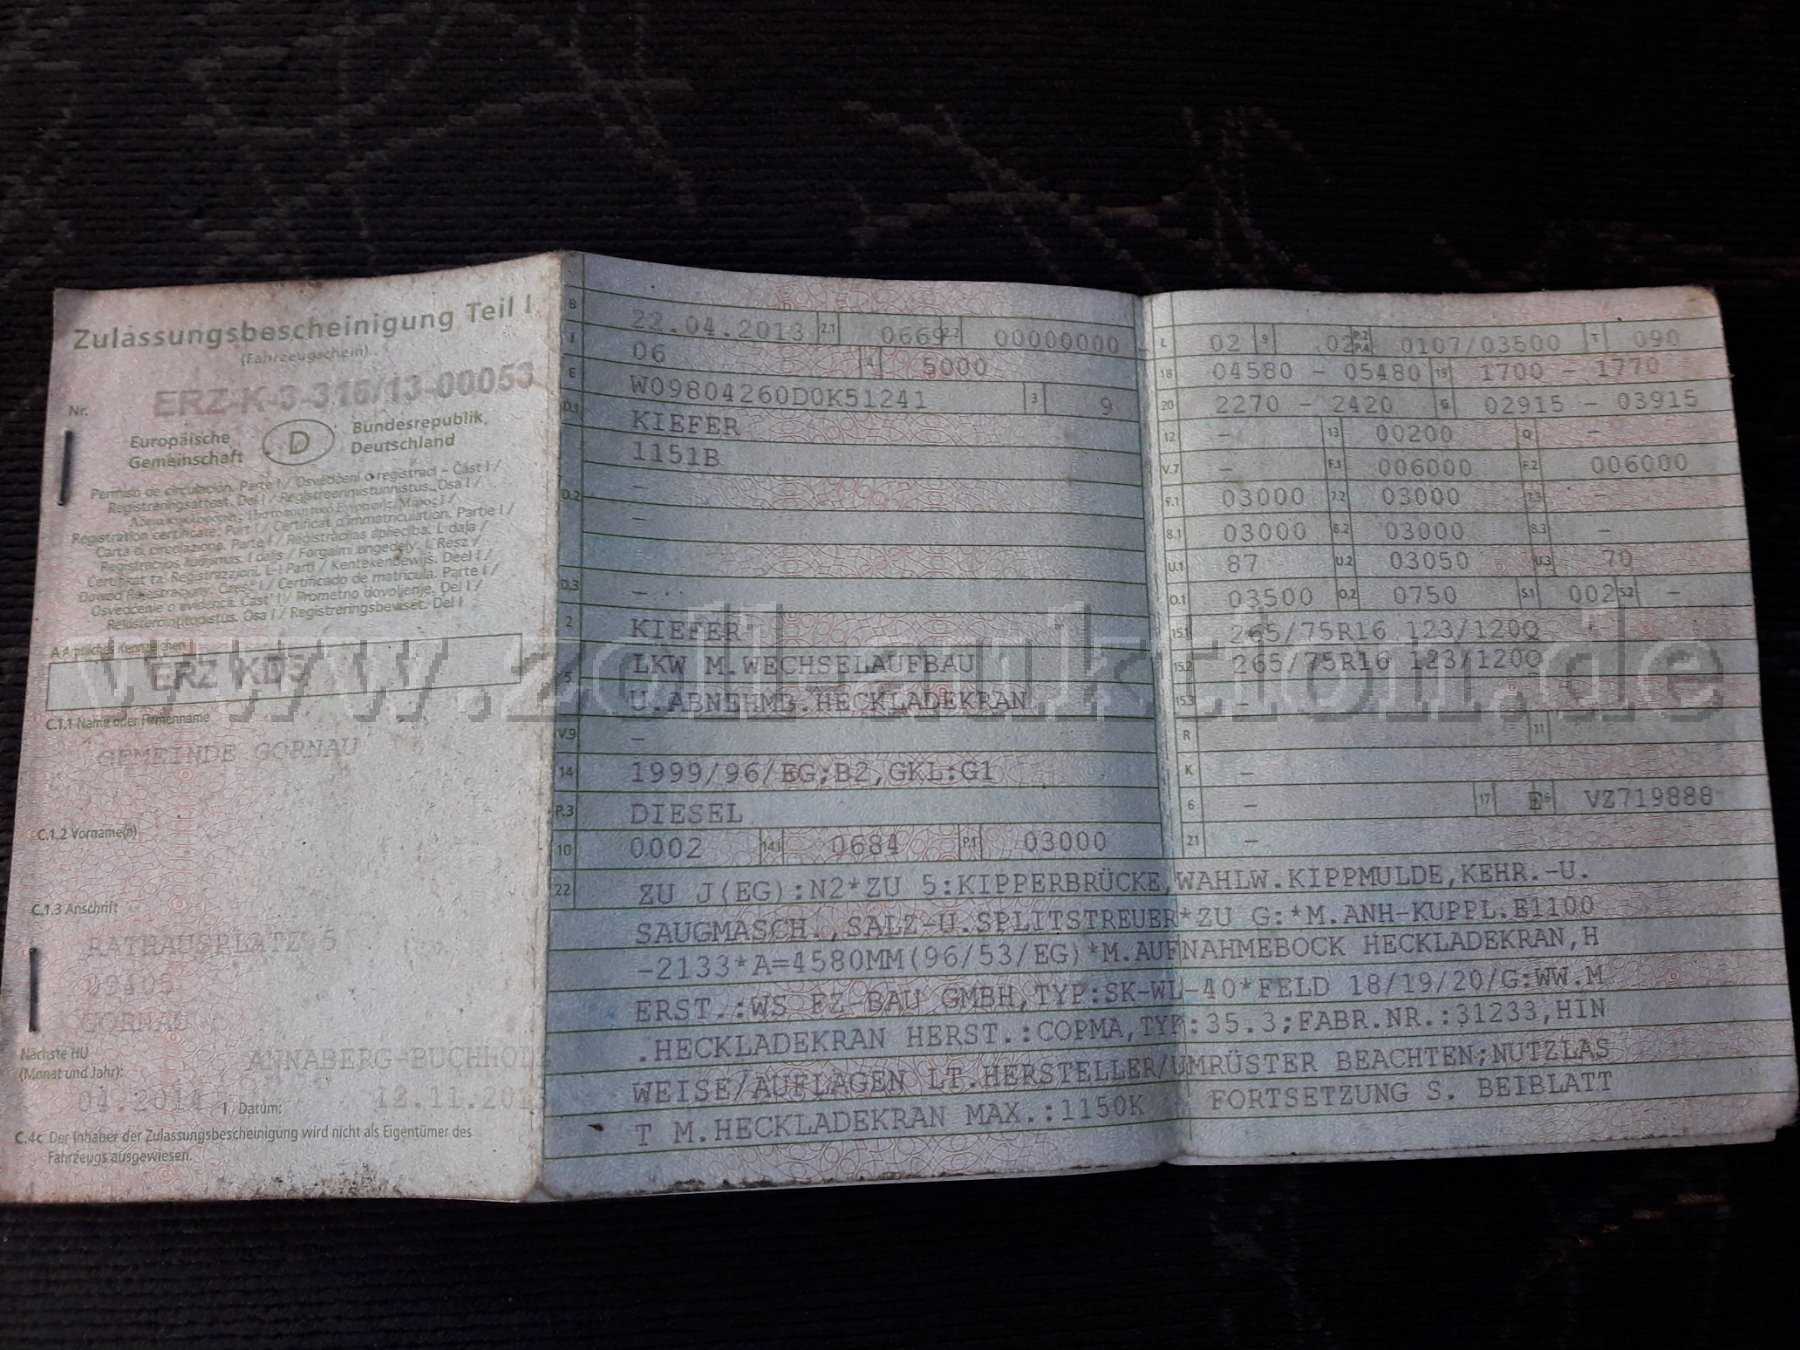 Zulassungsbescheinigung Teil I
(Fahrzeugschein)
Nr. ERZ-K-3-316/13-00053
Europäische Gemeinschaft D Bundesrepublik Deutschland
Permiso de circulación. Parte I / Osvědčení o registraci - Část I /
Registreringsattest. Del I / Registreerimistunnistus. Osa I /
Registration certificate. Part I / Certificat d'immatriculation. Partie I /
Carta di circolazione. Parte I / Reģistrācijas apliecība. I. daļa /
Registracijos liudijimas. I dalis / Forgalmi engedély. I. Rész /
Ċertifikat ta' Reġistrazzjoni. L-I Parti / Kentekenbewijs. Deel I /
Dowód Rejestracyjny. Część I / Certificado de matrícula. Parte I /
Osvedčenie o evidencii. Časť I / Prometno dovoljenje. Del I /
Rekisteröintitodistus. Osa I / Registreringsbeviset. Del I
A Amtliches Kennzeichen
ERZ KD3
C.1.1 Name oder Firmenname
GEMEINDE GORNAU
C.1.2 Vorname(n)
C.1.3 Anschrift
RATHAUSPLATZ 5
09405
GORNAU
Nächste HU
(Monat und Jahr):
ANNABERG-BUCHHOLZ
04.2014 I Datum: 12.11.201
C.4c Der Inhaber der Zulassungsbescheinigung wird nicht als Eigentümer des
Fahrzeugs ausgewiesen.
B 22.04.2013 2.1 0669 2.2 00000000
J 06 4 5000
E W09804260D0K51241 3 9
D.1 KIEFER
1151B
D.2 -
-
-
D.3 -
2 KIEFER
5 LKW M.WECHSELAUFBAU
U.ABNEHMB.HECKLADEKRAN
V.9 -
14 1999/96/EG;B2,GKL:G1
P.3 DIESEL
10 0002 14.1 0684 P.1 03000
L 02 9 02 P.2 P.4 0107/03500 T 090
18 04580 - 05480 19 1700 - 1770
20 2270 - 2420 G 02915 - 03915
12 - 13 00200 Q -
V.7 - F.1 006000 F.2 006000
7.1 03000 7.2 03000 7.3 -
8.1 03000 8.2 03000 8.3 -
U.1 87 U.2 03050 U.3 70
O.1 03500 O.2 0750 S.1 002 S.2 -
15.1 265/75R16 123/120Q
15.2 265/75R16 123/120Q
15.3 -
R 11
K -
6 - 17 E 16 VZ719888
21 -
22 ZU J(EG):N2*ZU 5:KIPPERBRÜCKE,WAHLW.KIPPMULDE,KEHR.-U.
SAUGMASCH.,SALZ-U.SPLITSTREUER*ZU G:*M.ANH-KUPPL.E1100
-2133*A=4580MM(96/53/EG)*M.AUFNAHMEBOCK HECKLADEKRAN,H
ERST.:WS FZ-BAU GMBH,TYP:SK-WL-40*FELD 18/19/20/G:WW.M
.HECKLADEKRAN HERST.:COPMA,TYP:35.3;FABR.NR.:31233,HIN
WEISE/AUFLAGEN LT.HERSTELLER/UMRÜSTER BEACHTEN;NUTZLAS
T M.HECKLADEKRAN MAX.:1150K FORTSETZUNG S. BEIBLATT
www.zoll-auktion.de